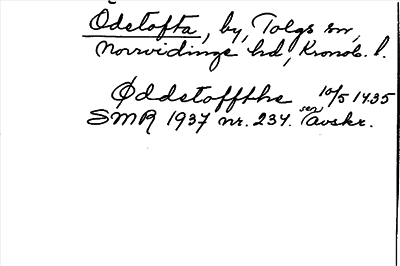 Ödetofta, by, Tolgs sn,
Norrvidinge hd, Kronob. l.
Øddetoffthe 10/5 1435
SMR 1937 nr. 234. sen avskr.